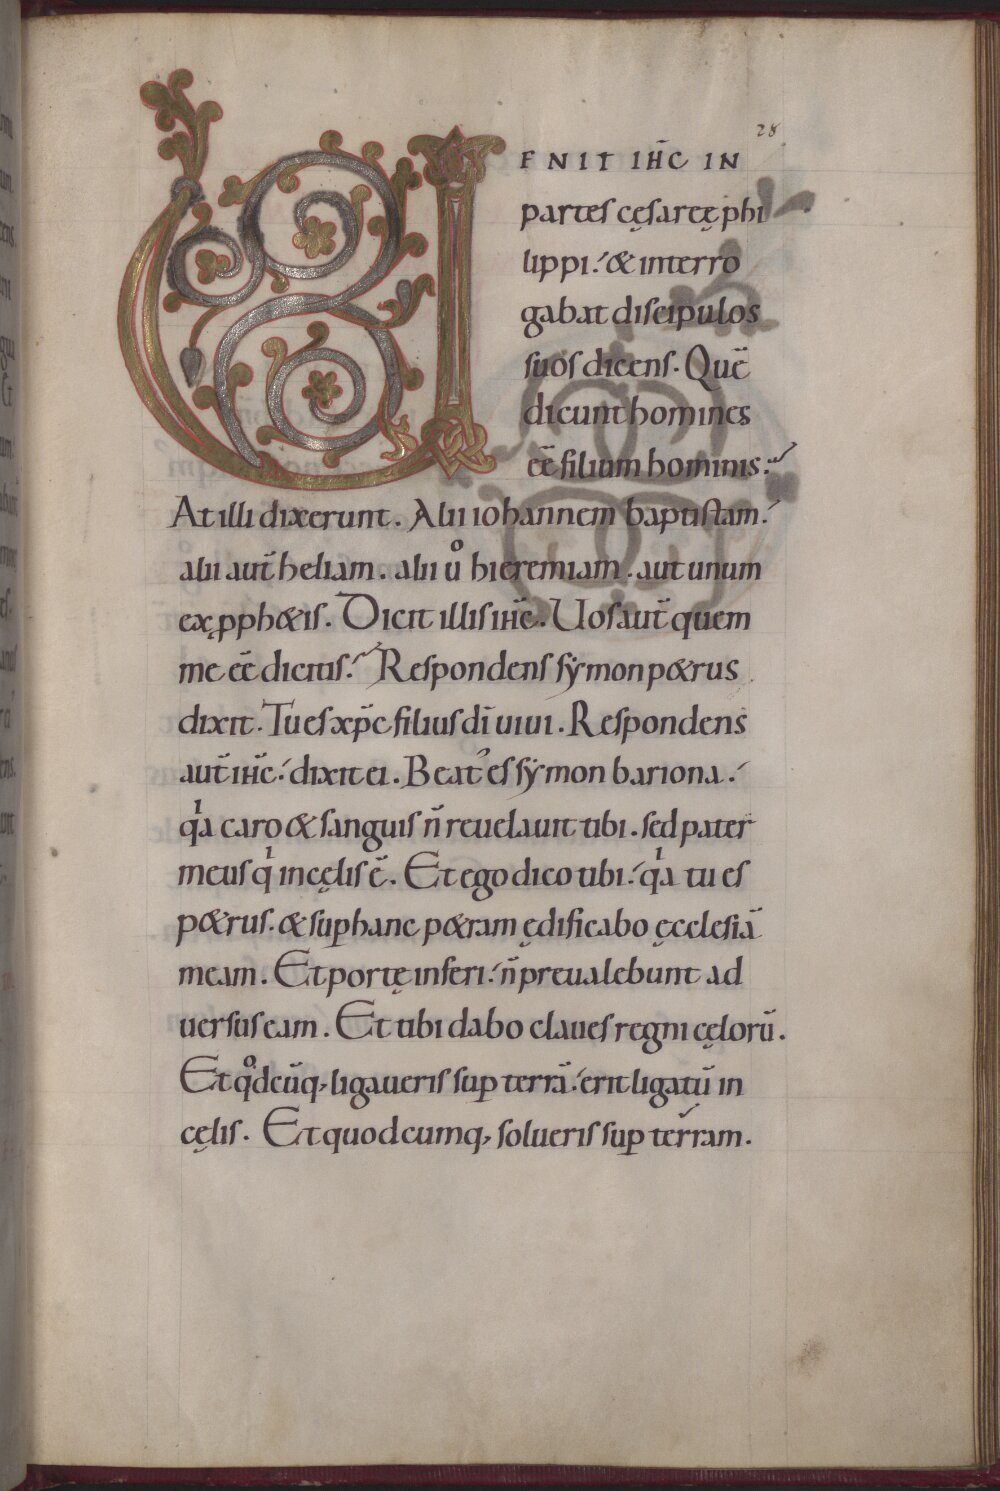 28
UENIT IHC̅ IN
partes cęsaręę phi
lippi. & interro
gabat discipulos
suos dicens. Que̅
dicunt homines
ee̅ filium hominis:
At illi dixerunt. Alii iohannem baptistam.
alii aut̅ heliam. alii uͦ hieremiam. aut unum
ex ꝓph&is. Dicit illis ihc̅. Uos aut̅ quem
me ee̅ dicitis. Respondens symon p&rus
dixit. Tu es xp̅c filius di̅ uiui. Respondens
aut̅ ihc̅. dixit ei. Beat᾽ es symon bariona.
qͥa caro & sanguis n̅ reuelauit tibi. sed pater
meus qͥ in cęlis e̅. Et ego dico tibi. qͥa tu es
p&rus. & suꝑ hanc p&ram ędificabo ęcclesia̅
meam. Et portę inferi. n̅ preualebunt ad
uersus eam. Et tibi dabo claues regni cęloru̅.
Et qͦdcu̅q, ligaueris suꝑ terra̅. erit ligatu̅ in
cęlis. Et quodcumq, solueris suꝑ terram.